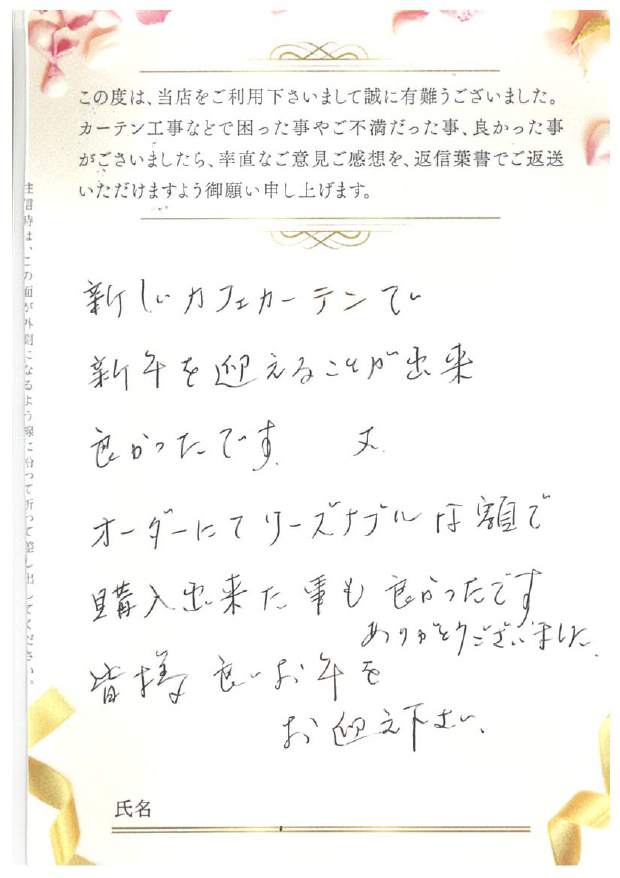 この度は、当店をご利用下さいまして誠に有難うございました。
カーテン工事などで困った事やご不満だった事、良かった事
がございましたら、率直なご意見ご感想を、返信葉書でご返送
いただけますよう御願い申し上げます。
新しいカフェカーテンで
新年を迎えることが出来
良かったです。 又
オーダーにてリーズナブルな額で
購入出来た事も良かったです
ありがとうございました。
皆様良いお年を
お迎え下さい。
氏名
返信時は、この面が外側になるよう線に沿って折って差し出してください。